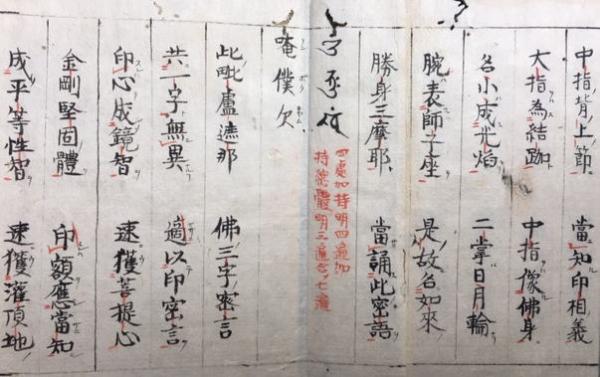 中指背上節　當知印相義
大指為結跏　中指像佛身
名小成光焰　二掌日月輪
腕表師子座　是故名如來
勝身三摩耶　當誦此密語
四處加持明四遍加
持 明三遍合ノ七遍
唵僕欠
此毗盧遮那　佛三字密言
共一字無異　適以印密言
印心成鏡智　速獲菩提心
金剛堅固體　印額應當知
成平等性智　速獲灌頂地